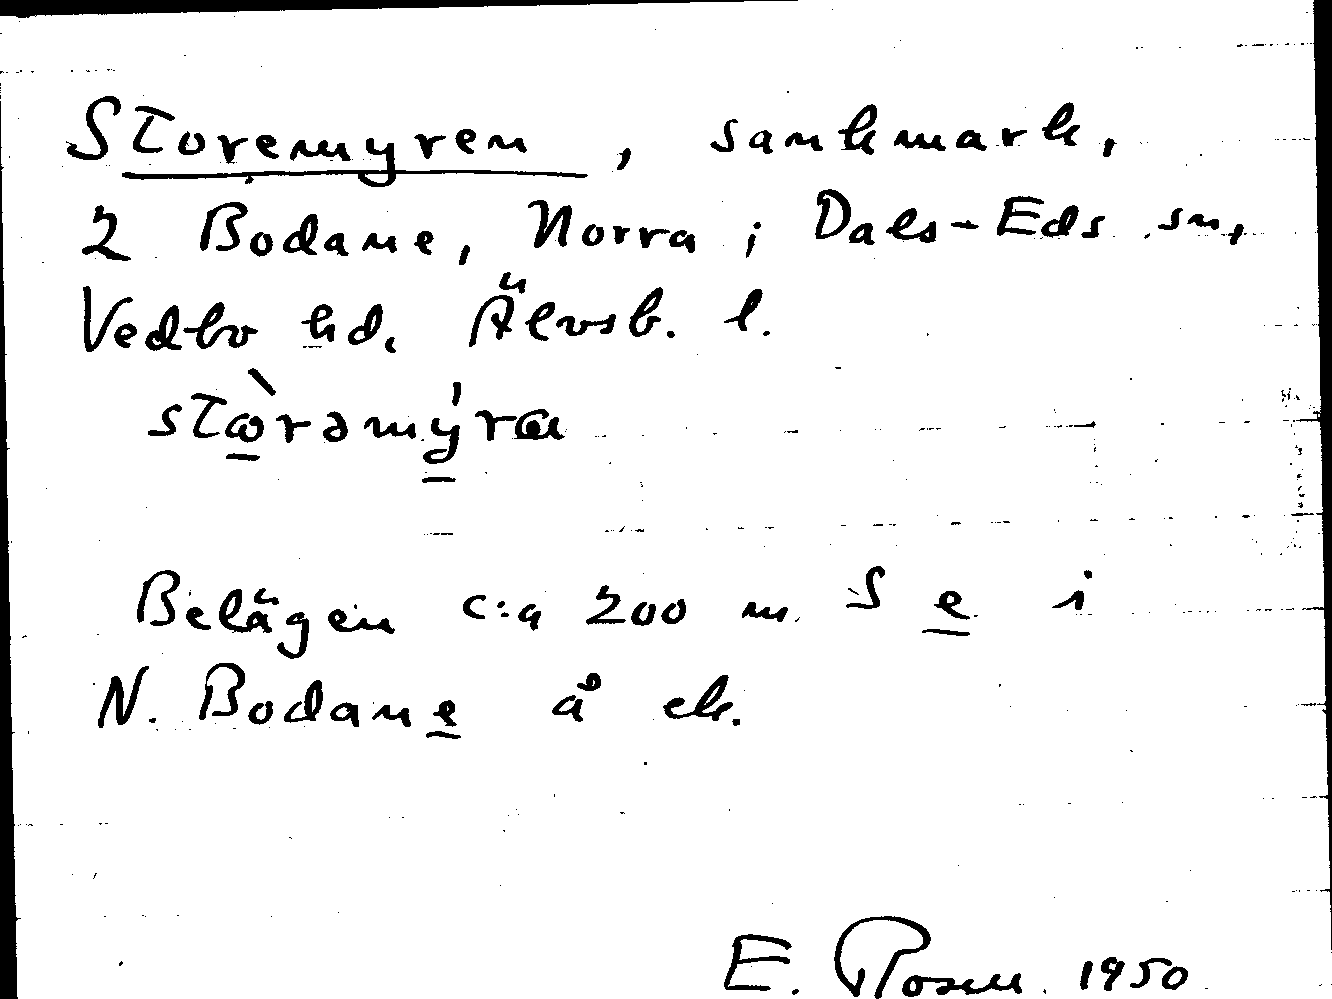 Storemyren, sankmark,
2 Bodane, Norra; Dals-Eds sn,
Vedbo hd. Älvsb. l.
Belägen c:a 200 m. S e i
N. Bodane å ek.
E. Rosen 1950